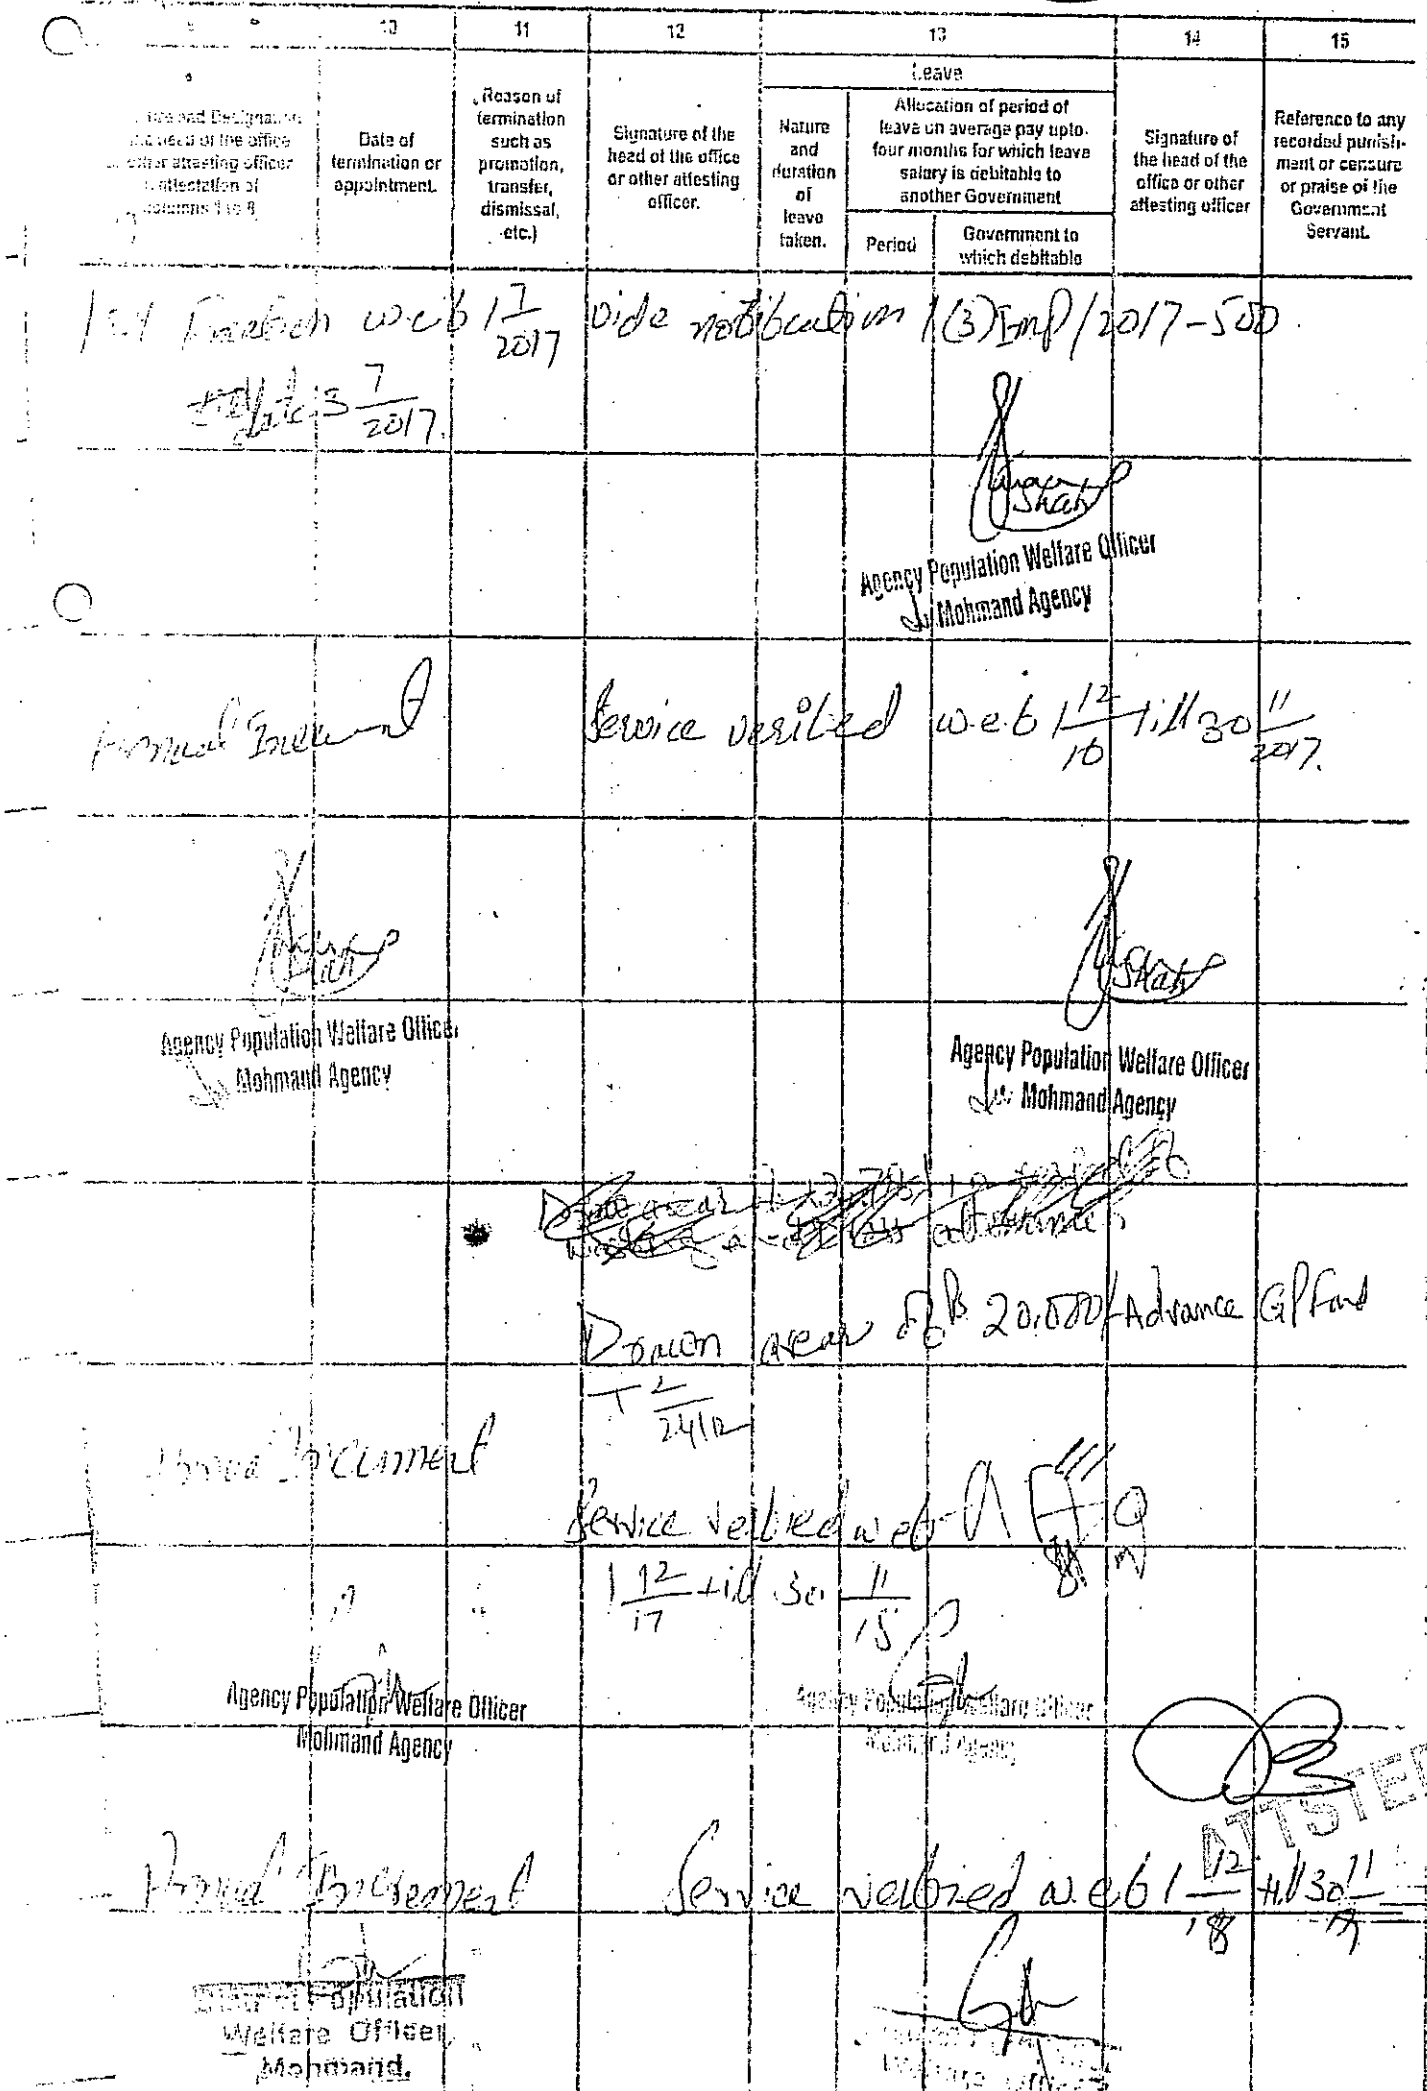 10 11 12 13 14 15
Leave
and Designation
head of the office
other attesting officer
attestation of
columns 1 to 8
Date of
termination or
appointment.
Reason of
termination
such as
promotion,
transfer,
dismissal,
etc.)
Signature of the
head of the office
or other attesting
officer.
Nature
and
duration
of
leave
taken.
Allocation of period of
leave on average pay upto
four months for which leave
salary is debitable to
another Government
Period
Government to
which debitable
Signature of
the head of the
office or other
attesting officer
Reference to any
recorded punish-
ment or censure
or praise of the
Government
Servant.
w.e.f 1 7/2017 vide notification 1(3)Imp/2017-500.
3 7/2017.
Shah
Agency Population Welfare Officer
Mohmand Agency
Annual Service verified w.e.f 1 12/16 till 30 11/2017.
Shah
Shah
Agency Population Welfare Officer
Mohmand Agency
Agency Population Welfare Officer
Mohmand Agency
allowance
Drawn arear of Rs 20,000/- Advance GP Fund
Annual Increment
Service verified w.e.f
1 12/17 till 30 11/18
Agency Population Welfare Officer
Mohmand Agency
Agency Population Welfare Officer
Mohmand Agency
ATTSTED
Annual Increment Service verified w.e.f 1 12/18 till 30 11/19
District Population
Welfare Officer,
Mohmand.
Welfare Officer